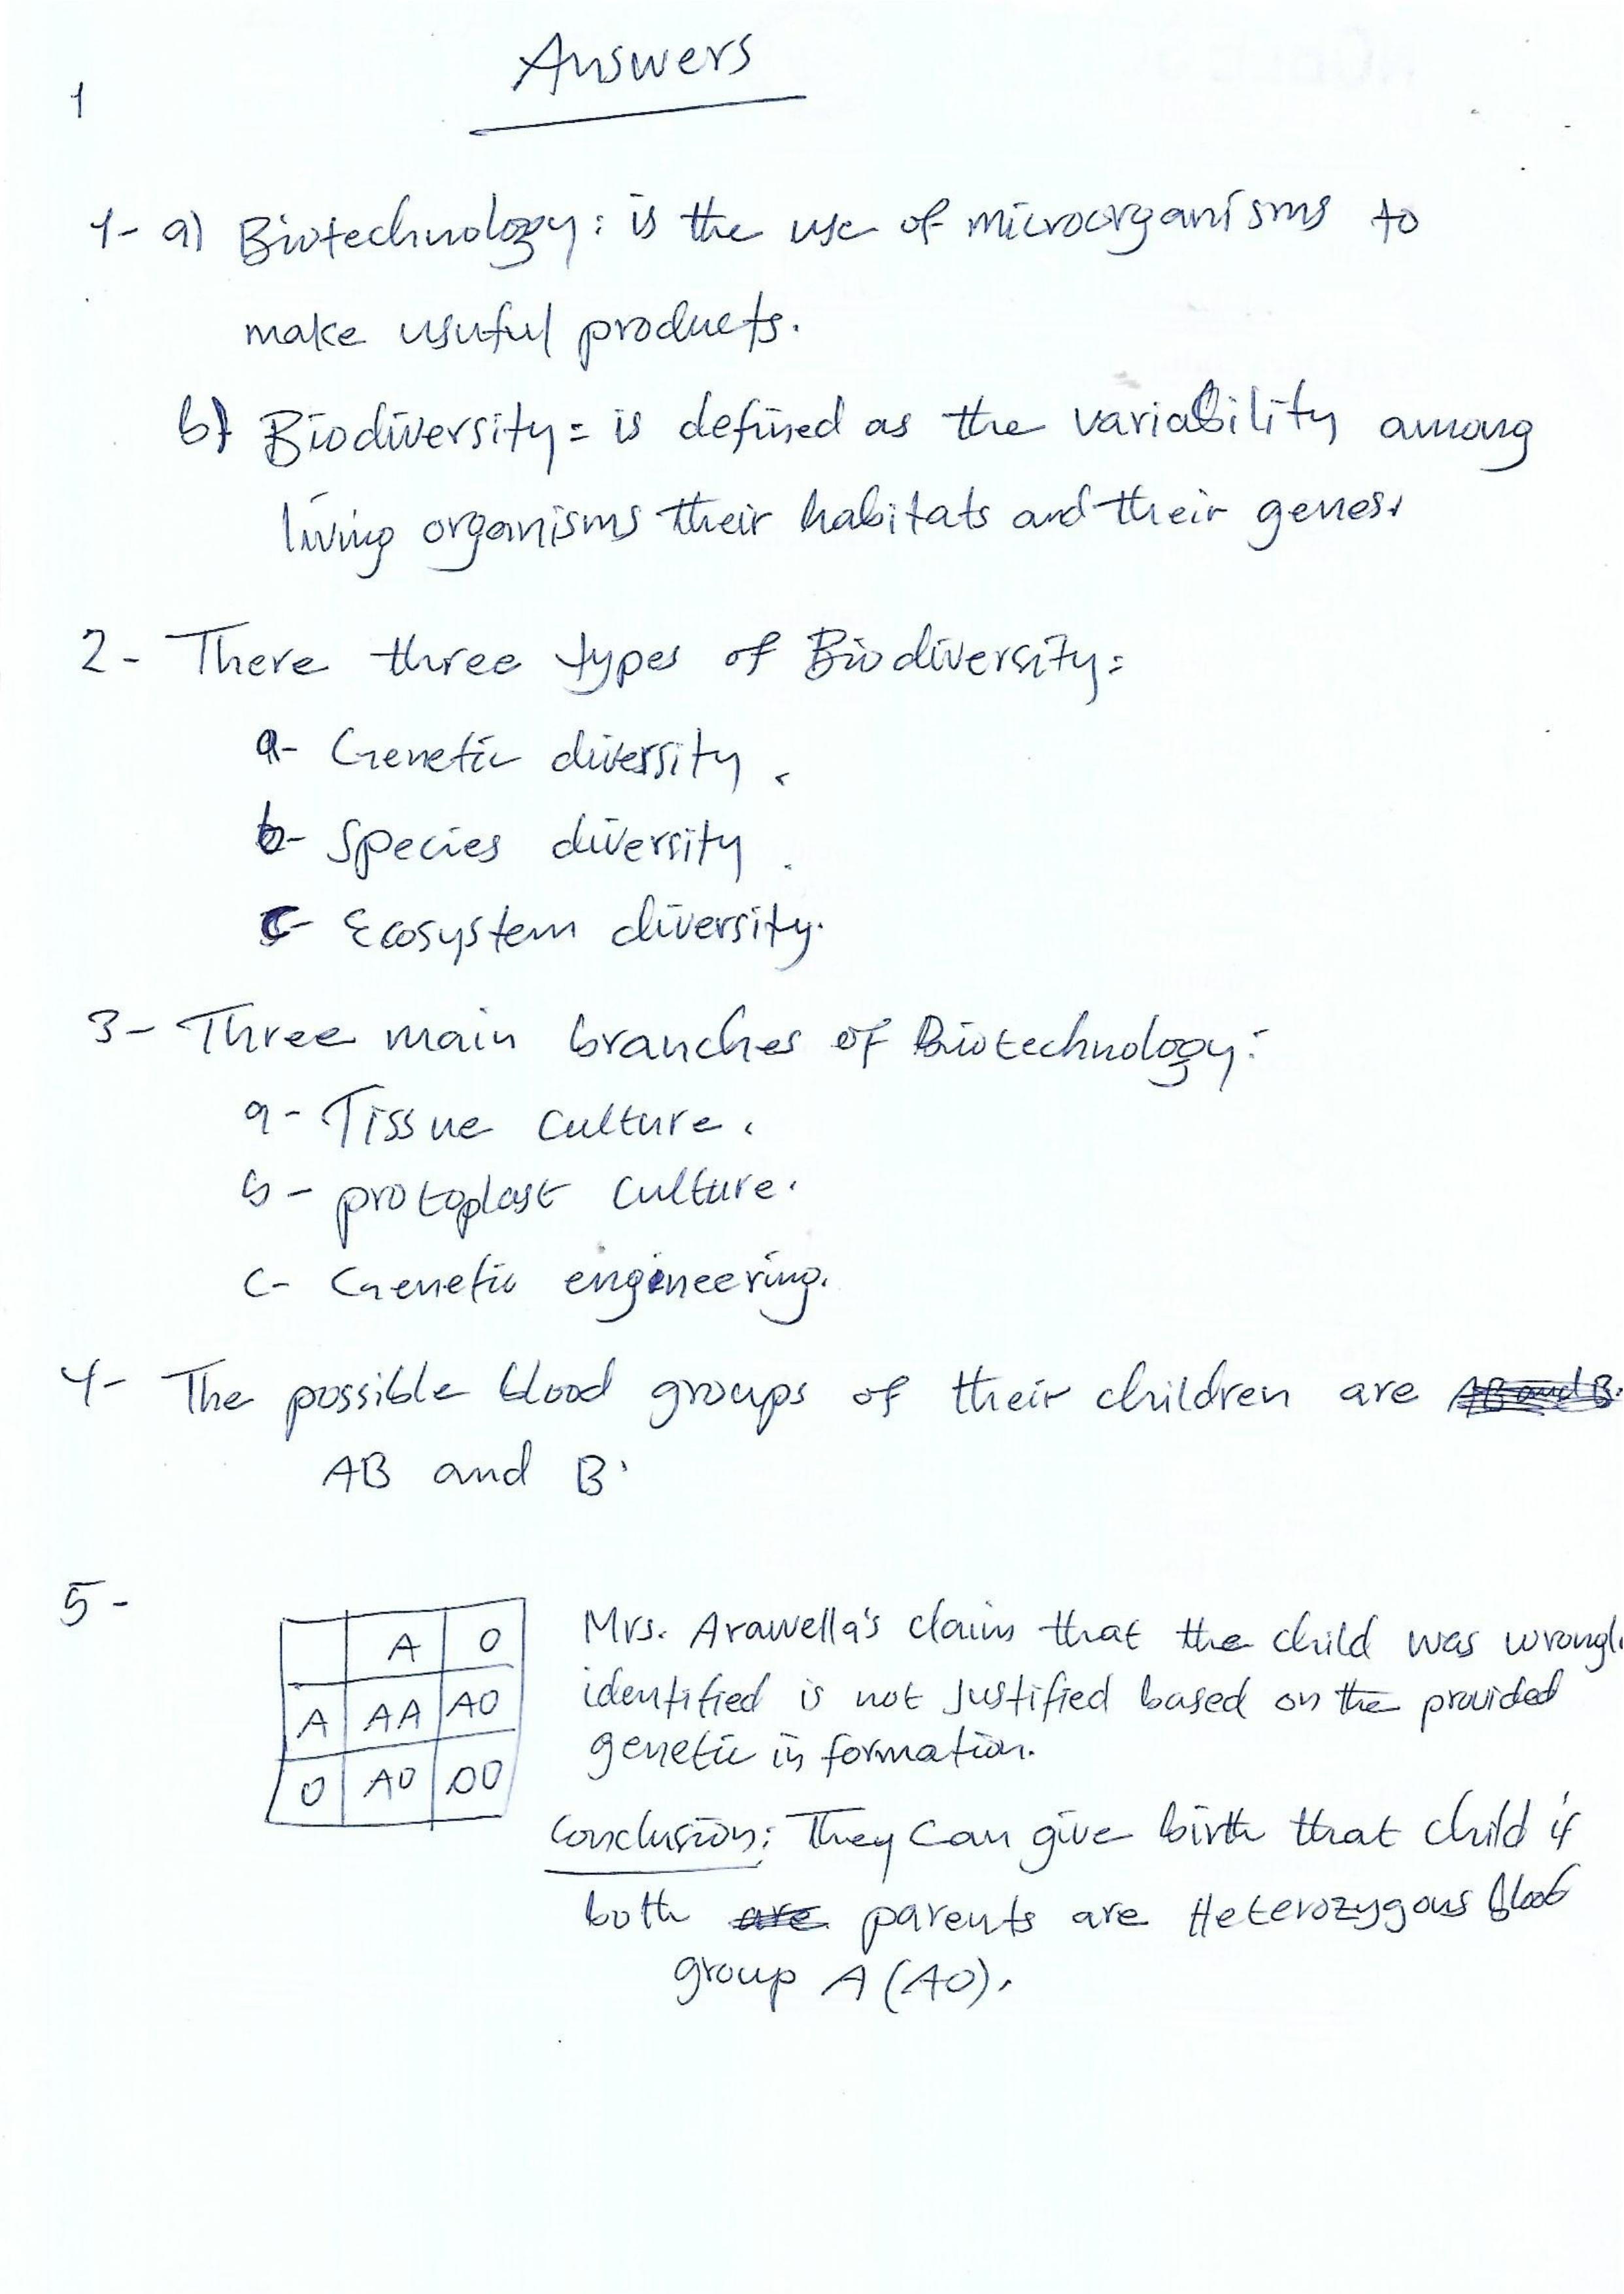 Answers
1
1- a) Biotechnology: is the use of microorganisms to
make usuful products.
b) Biodiversity: is defined as the variability among
living organisms their habitats and their genes.
2- There three types of Biodiversity:
a- Genetic diversity.
b- Species diversity.
c- Ecosystem diversity.
3- Three main branches of Biotechnology:
a- Tissue culture.
b- protoplast culture.
c- Genetic engineering.
4- The possible blood groups of their children are AB and B.
AB and B.
5-
A O
A AA AO
O AO OO
Mrs. Arawella's claim that the child was wrongl
identified is not Justified based on the provided
genetic information.
Conclusion: They can give birth that child if
both are parents are Heterozygous blood
group A (AO).